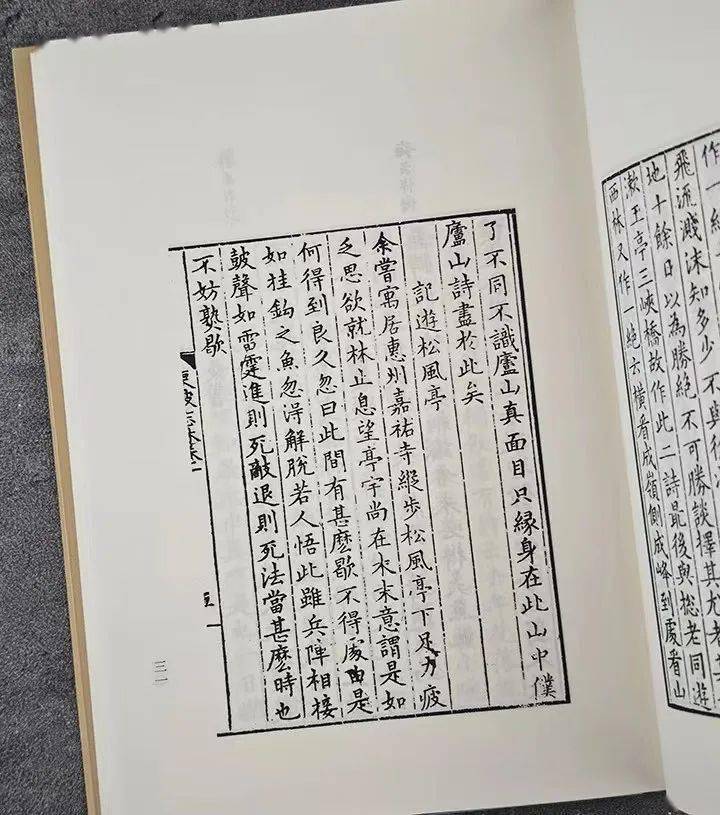 作一絕
飛流濺沫知多少不與徐
地十餘日以為勝絕不可勝談擇其尤者
漱玉亭三峽橋故作此二詩最後與捴老同遊
西林又作一絕云橫看成嶺側成峰到處看山
了不同不識廬山真面目只緣身在此山中僕
廬山詩盡於此矣
記遊松風亭
余嘗寓居惠州嘉祐寺縱步松風亭下足力疲
乏思欲就林止息望亭宇尚在木末意謂是如
何得到良久忽曰此間有甚麽歇不得處由是
如挂鈎之魚忽得解脫若人悟此雖兵陣相接
皷聲如雷霆進則死敵退則死法當甚麽時也
不妨熟歇
東坡志林卷一
三一